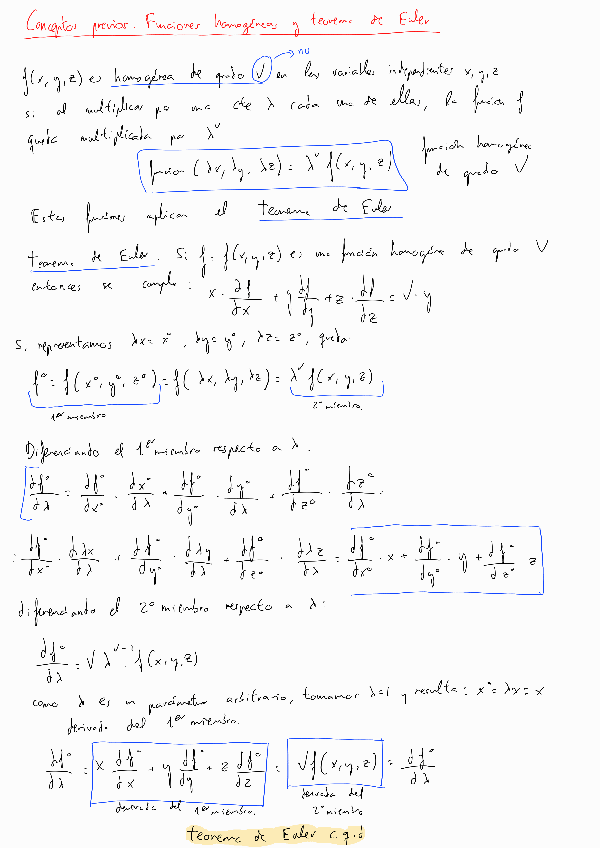 Conceptos previos. Funciones homogéneas y teorema de Euler
→ nu
f(x, y, z) es homogénea de grado ν en las variables independientes x, y, z
si al multiplicar por una cte λ cada una de ellas, la función f
queda multiplicada por λ^ν
función (λx, λy, λz) = λ^ν f(x, y, z)
función homogénea
de grado ν
Estas funciones aplican el teorema de Euler
teorema de Euler. Si f = f(x, y, z) es una función homogénea de grado ν
entonces se cumple: x · ∂f/∂x + y ∂f/∂y + z · ∂f/∂z = ν · y
Si representamos λx = x°, λy = y°, λz = z°, queda
f° = f(x°, y°, z°) = f(λx, λy, λz) = λ^ν f(x, y, z)
1er miembro 2° miembro
Diferenciando el 1er miembro respecto a λ.
∂f°/∂λ = ∂f°/∂x° · ∂x°/∂λ + ∂f°/∂y° · ∂y°/∂λ + ∂f°/∂z° · ∂z°/∂λ =
= ∂f°/∂x° · ∂λx/∂λ + ∂f°/∂y° · ∂λy/∂λ + ∂f°/∂z° · ∂λz/∂λ = ∂f°/∂x° · x + ∂f°/∂y° · y + ∂f°/∂z° z
diferenciando el 2° miembro respecto a λ.
∂f°/∂λ = ν λ^ν-1 f(x, y, z)
como λ es un parámetro arbitrario, tomamos λ=1 y resulta: x° = λx = x
derivada del 1er miembro.
∂f°/∂λ = x ∂f°/∂x + y ∂f°/∂y + z ∂f°/∂z = ν f(x, y, z) = ∂f°/∂λ
derivada del 1er miembro. derivada del
2° miembro
teorema de Euler c.q.d